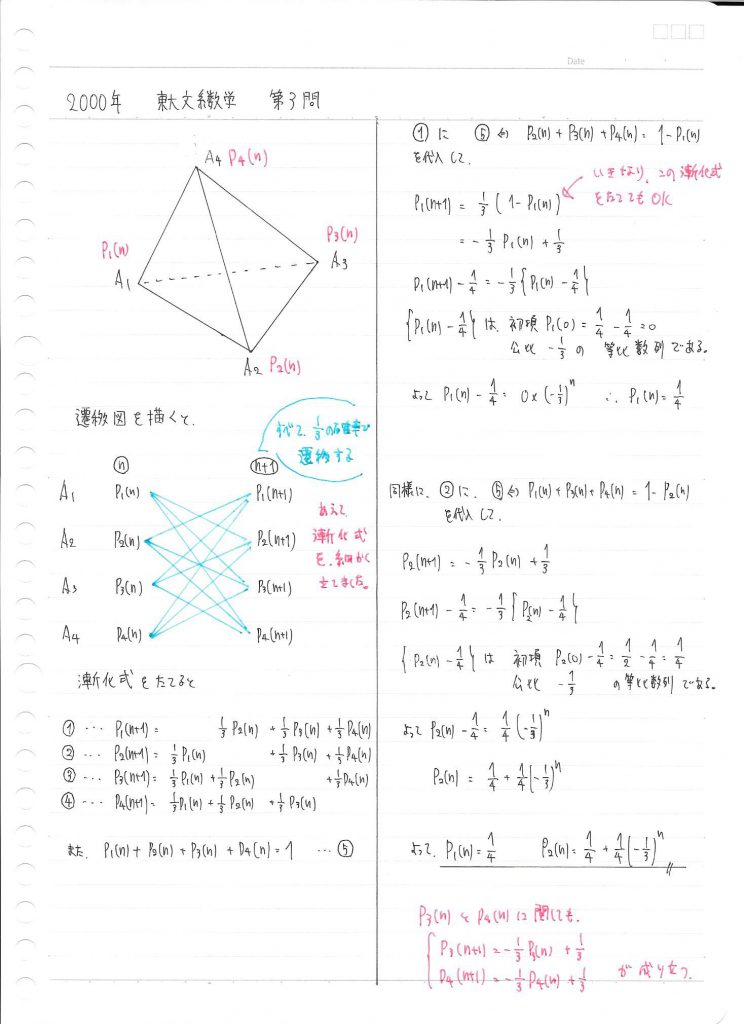 Date
2000年 東大文系数学 第3問
A4 P4(n)
P1(n)
A1
P3(n)
A3
A2 P2(n)
遷移図を描くと、
すべて、1/3の確率で
遷移する
n n+1
A1 P1(n) P1(n+1)
A2 P2(n) P2(n+1)
A3 P3(n) P3(n+1)
A4 P4(n) P4(n+1)
あえて
漸化式
を、細かく
立てました。
漸化式をたてると
① … P1(n+1) = 1/3 P2(n) + 1/3 P3(n) + 1/3 P4(n)
② … P2(n+1) = 1/3 P1(n) + 1/3 P3(n) + 1/3 P4(n)
③ … P3(n+1) = 1/3 P1(n) + 1/3 P2(n) + 1/3 P4(n)
④ … P4(n+1) = 1/3 P1(n) + 1/3 P2(n) + 1/3 P3(n)
また、P1(n) + P2(n) + P3(n) + P4(n) = 1 … ⑤
①に ⑤ ⇔ P2(n) + P3(n) + P4(n) = 1 - P1(n)
を代入して、
いきなり、この漸化式
をたててもOK
P1(n+1) = 1/3 (1 - P1(n))
= -1/3 P1(n) + 1/3
P1(n+1) - 1/4 = -1/3 {P1(n) - 1/4}
{P1(n) - 1/4} は、初項 P1(0) = 1/4 - 1/4 = 0
公比 -1/3 の 等比数列である。
よって P1(n) - 1/4 = 0 × (-1/3)^n ∴ P1(n) = 1/4
同様に、②に、⑤ ⇔ P1(n) + P3(n) + P4(n) = 1 - P2(n)
を代入して、
P2(n+1) = -1/3 P2(n) + 1/3
P2(n+1) - 1/4 = -1/3 {P2(n) - 1/4}
{P2(n) - 1/4} は 初項 P2(0) - 1/4 = 1/2 - 1/4 = 1/4
公比 -1/3 の等比数列である。
よって P2(n) - 1/4 = 1/4 (-1/3)^n
P2(n) = 1/4 + 1/4 (-1/3)^n
よって、P1(n) = 1/4 P2(n) = 1/4 + 1/4 (-1/3)^n
P3(n) と P4(n) に関しても、
P3(n+1) = -1/3 P3(n) + 1/3
P4(n+1) = -1/3 P4(n) + 1/3 が成り立つ。